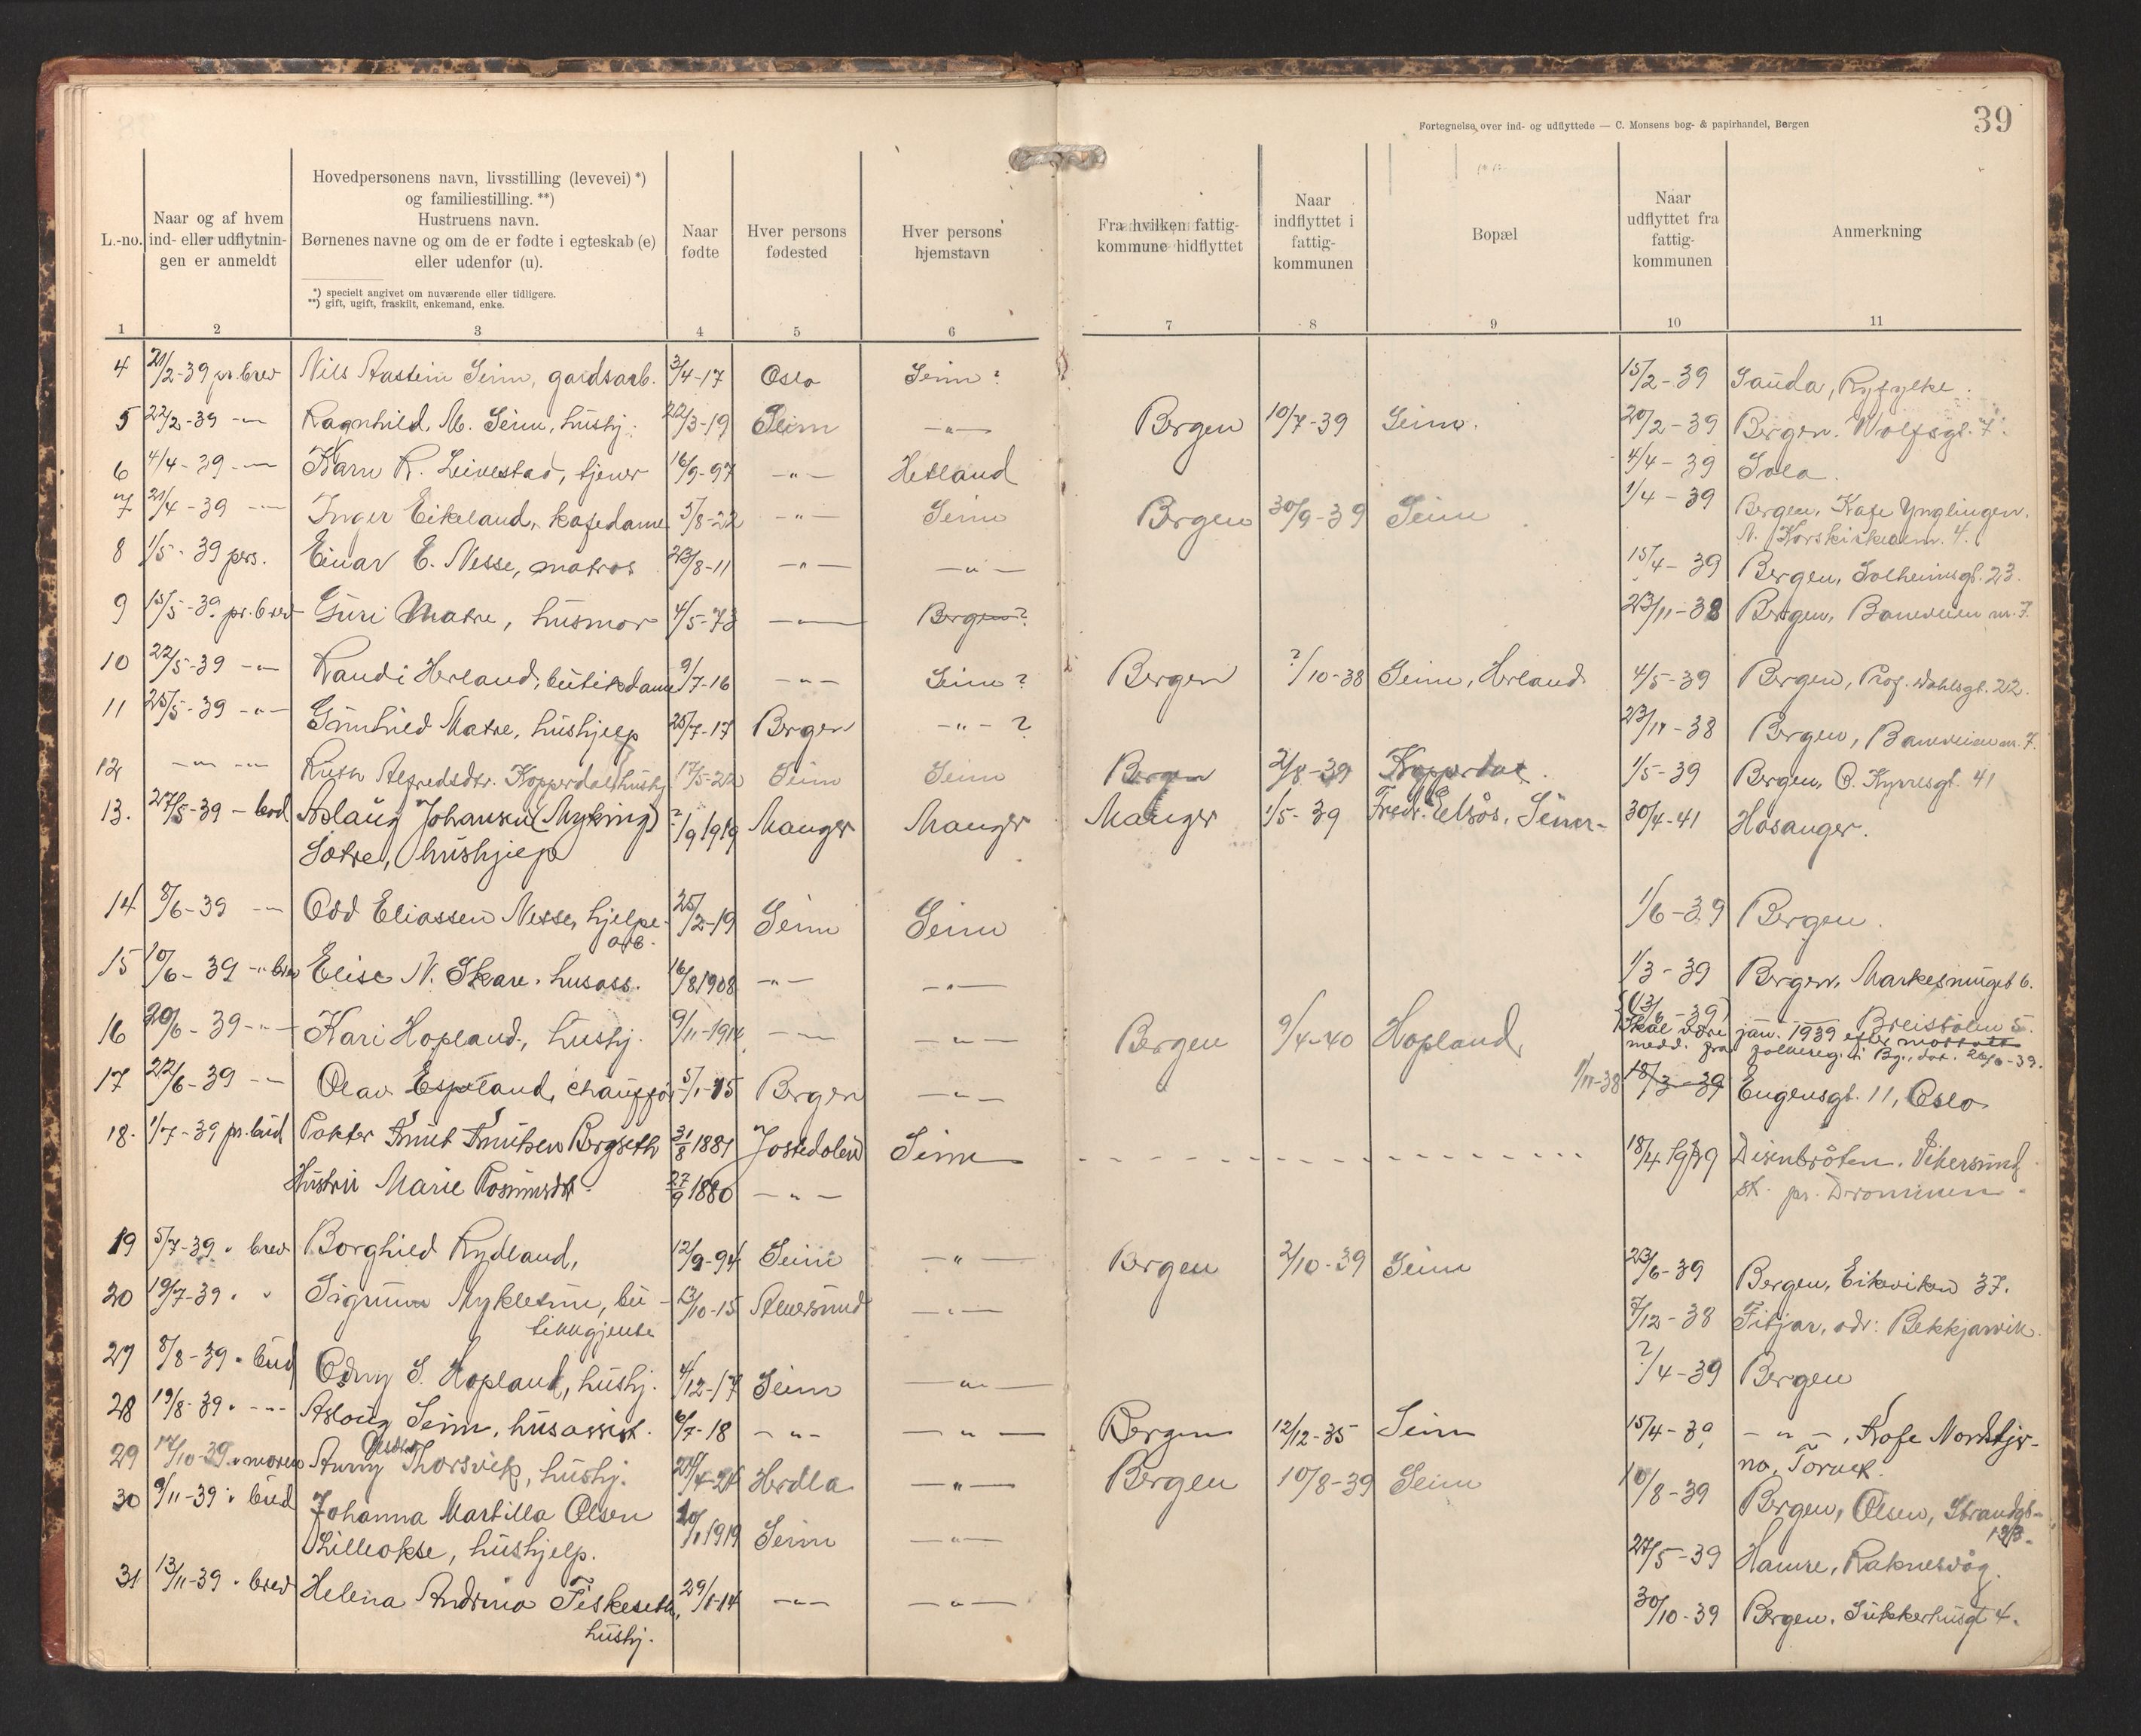 39
Fortegnelse over ind- og udflyttede — C. Monsens bog- & papirhandel, Bergen
L.-no.
Naar og af hvem
ind- eller udflytnin-
gen er anmeldt
Hovedpersonens navn, livsstilling (levevei) *)
og familiestilling. **)
Hustruens navn.
Børnenes navne og om de er fødte i egteskab (e)
eller udenfor (u).
*) specielt angivet om nuværende eller tidligere.
**) gift, ugift, fraskilt, enkemand, enke.
Naar
fødte
Hver persons
fødested
Hver persons
hjemstavn
Fra hvilken fattig-
kommune hidflyttet
Naar
indflyttet i
fattig-
kommunen
Bopæl
Naar
udflyttet fra
fattig-
kommunen
Anmerkning
1 2 3 4 5 6 7 8 9 10 11
4 21/2-39 pr. brev Nils Aastein Seim, gardsarb. 3/4-17 Oslo Seim? 15/2-39 Sauda, Ryfylke.
5 22/2-39 -"- Ragnhild M. Seim, hushj. 22/3-19 Seim -"- Bergen 10/7-39 Seim. 20/2-39 Bergen. Wolfsgt. 7.
6 4/4-39 -"- Karn R. Leivestad, tjener 16/9-97 -"- Hetland 4/4-39 Sola.
7 21/4-39 -"- Inger Eikeland, kafedame 5/8-22 -"- Seim Bergen 30/9-39 Seim 1/4-39 Bergen, Kafe Ynglingen.
N. Korskirkealm. 4.
8 1/5-39 pers. Einar E. Nesse, matros 23/8-11 -"- -"- 15/4-39 Bergen, Solheimsgt. 23.
9 15/5-39 pr. brev Guri Matre, husmor 4/5-73 -"- Bergen? 23/11-38 Bergen, Baneveien nr. 7.
10 22/5-39 -"- Randi Herland, butikdame 9/7-16 -"- Seim? Bergen ?/10-38 Seim, Herland 4/5-39 Bergen, Prof. Dahlsgt. 22.
11 25/5-39 -"- Gunhild Matre, hushjelp 25/7-17 Bergen -"- ? 23/11-38 Bergen, Baneveien nr. 7.
12 -"- -"- Ruth Alfredsdtr. Kopperdal, hushj. 17/5-22 Seim Seim Bergen 2/8-39 Kopperdal. 1/5-39 Bergen, O. Kyrresgt. 41
13. 27/5-39 - bud Aslaug Johansen (Myking) ?/9 1919 Manger Manger Manger 1/5-39 Fredr. Elsås, Seim- 30/4-41 Hosanger.
Sætre, hushjelp
14 8/6-39 -"- Odd Eliassen Nesse, hjelpe- 25/2-19 Seim Seim 1/6-39 Bergen.
arb.
15 10/6-39 -"- brev Elise N. Skare, husass. 16/8 1908 -"- -"- 1/3-39 Bergen, Markesmuget 6.
16 20/6-39 -"- Kari Hopland, hushj. 9/11-1914 -"- -"- Bergen 9/4-40 Hopland (13/6-39) Breistølen 5.
Skal være jan. 1939 efter mottatt
medd. fra folkereg. i Bg., dat. 26/6-39.
17 22/6-39 -"- Olav Espeland, chauffør 5/1-15 Bergen -"- 1/11-38 18/3-39 Eugensgt. 11, Oslo
18. 1/7-39 pr. bud Pakter Knut Knutsen Bergseth 31/8 1881 Jostedalen Seim 18/4 1939 Disenbråten, Vikersund
Hustru Marie Rasmusdtr. 27/9 1880 -"- st. pr. Drammen.
19 5/7-39 " brev Borghild Rydland, 12/9-94 Seim -"- Bergen 2/10-39 Seim 23/6-39 Bergen, Eikeviken 37.
20 19/7-39 " " Sigrunn Mykletun, bu- 13/10-15 Alversund -"- 7/12-38 Fitjar, adr: Bekkjarvik.
tikkgjente
27 8/8-39 " bud Odny S. Hopland, hushj. 4/12-17 Seim -"- ?/4-39 Bergen
28 19/8-39 " -"- Aslaug Seim, husassist. 6/7-18 -"- -"- Bergen 12/12-35 Seim 15/4-39 -"-, Kafe Nordstjer-
no, Torvet.
29 17/10-39 " moren Anny Thorsvik, hushj. 24/4-24 Herdla -"- Bergen 10/8-39 Seim 10/8-39 Bergen, Olsen, Strandgt.
30 9/11-39 " bud Johanna Martilla Olsen 20/1 1919 Seim -"- 27/5-39 Hamre, Raknesvåg.
Lilleokse, hushjelp.
31 13/11-39 " brev Helena Andrina Fiskeseth, 29/1-14 -"- -"- 30/10-39 Bergen, Sukkerhusgt 4.
hushj.